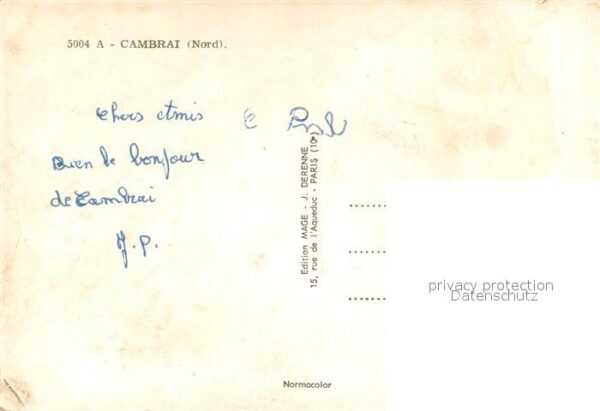 5004 A - CAMBRAI (Nord).
Chers Amis
Bien le bonjour
de Cambrai
J.P.
Edition MAGE - J. DERENNE
15, rue de l'Aqueduc - PARIS (10e)
privacy protection
Datenschutz
Normacolor